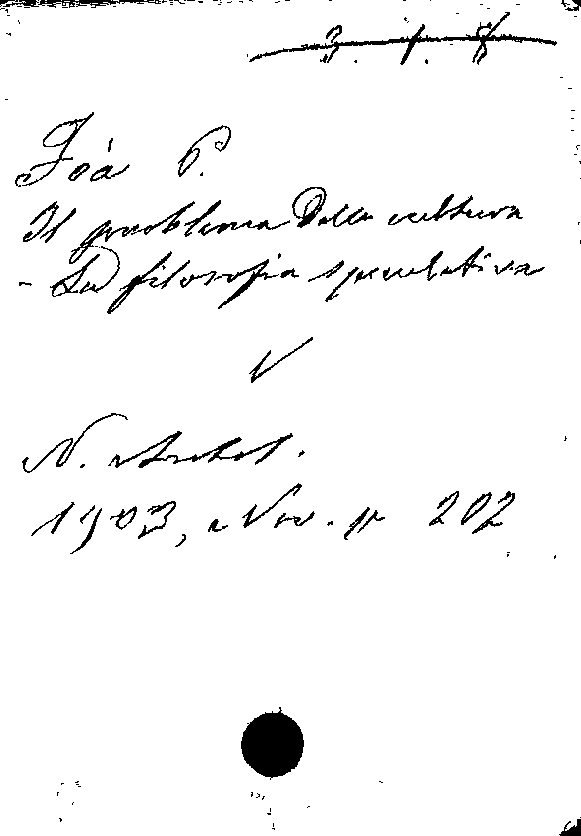 3. 1. 8
Foà P.
Il problema della cultura
- La filosofia speculativa
V
N. Antol.
1903, Nov. p 202